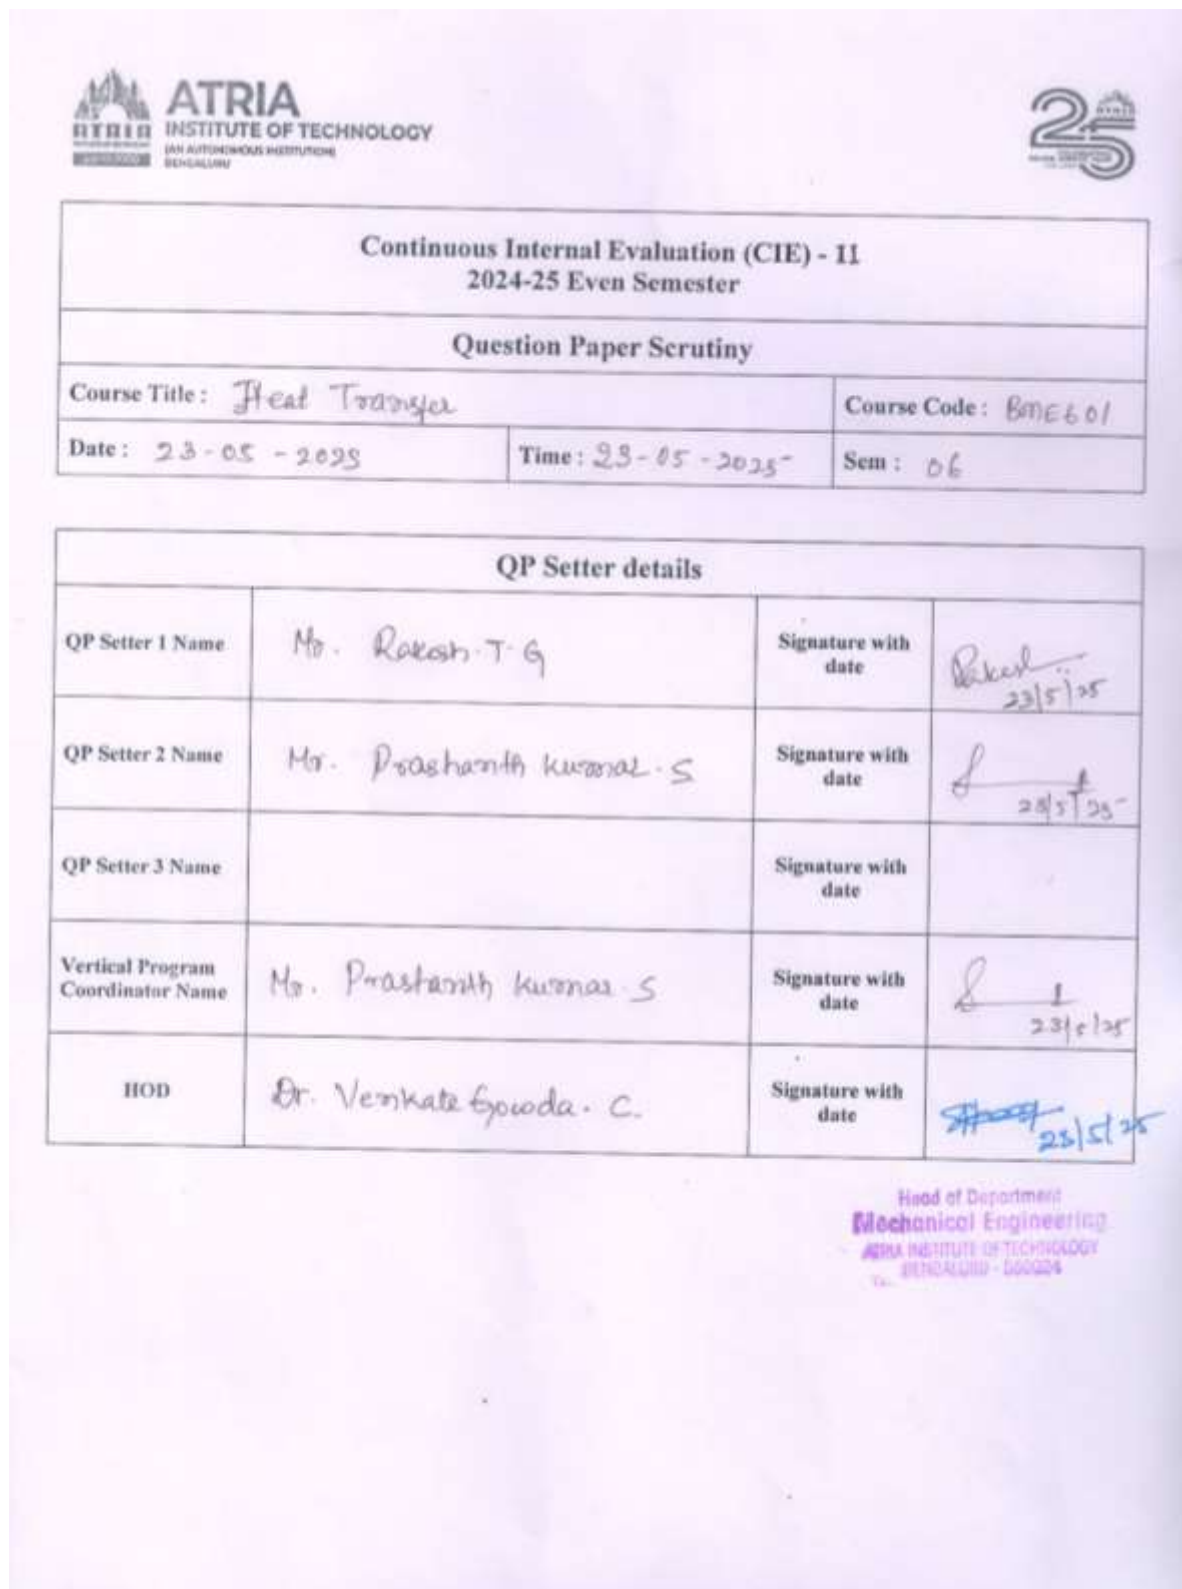 ATRIA
INSTITUTE OF TECHNOLOGY
(AN AUTONOMOUS INSTITUTION)
BENGALURU
ATRIA
25
Continuous Internal Evaluation (CIE) - II
2024-25 Even Semester
Question Paper Scrutiny
Course Title : Heat Transfer
Course Code : BME601
Date : 23-05-2025
Time : 23-05-2025
Sem : 06
QP Setter details
QP Setter 1 Name
Mr. Rakesh. T. G
Signature with
date
Rakesh
23/5/25
QP Setter 2 Name
Mr. Prashanth Kumar. S
Signature with
date
23/5/25
QP Setter 3 Name
Signature with
date
Vertical Program
Coordinator Name
Mr. Prashanth Kumar S
Signature with
date
23/5/25
HOD
Dr. Venkate Gowda. C.
Signature with
date
23/5/25
Head of Department
Mechanical Engineering
ATRIA INSTITUTE OF TECHNOLOGY
BENGALURU - 560024